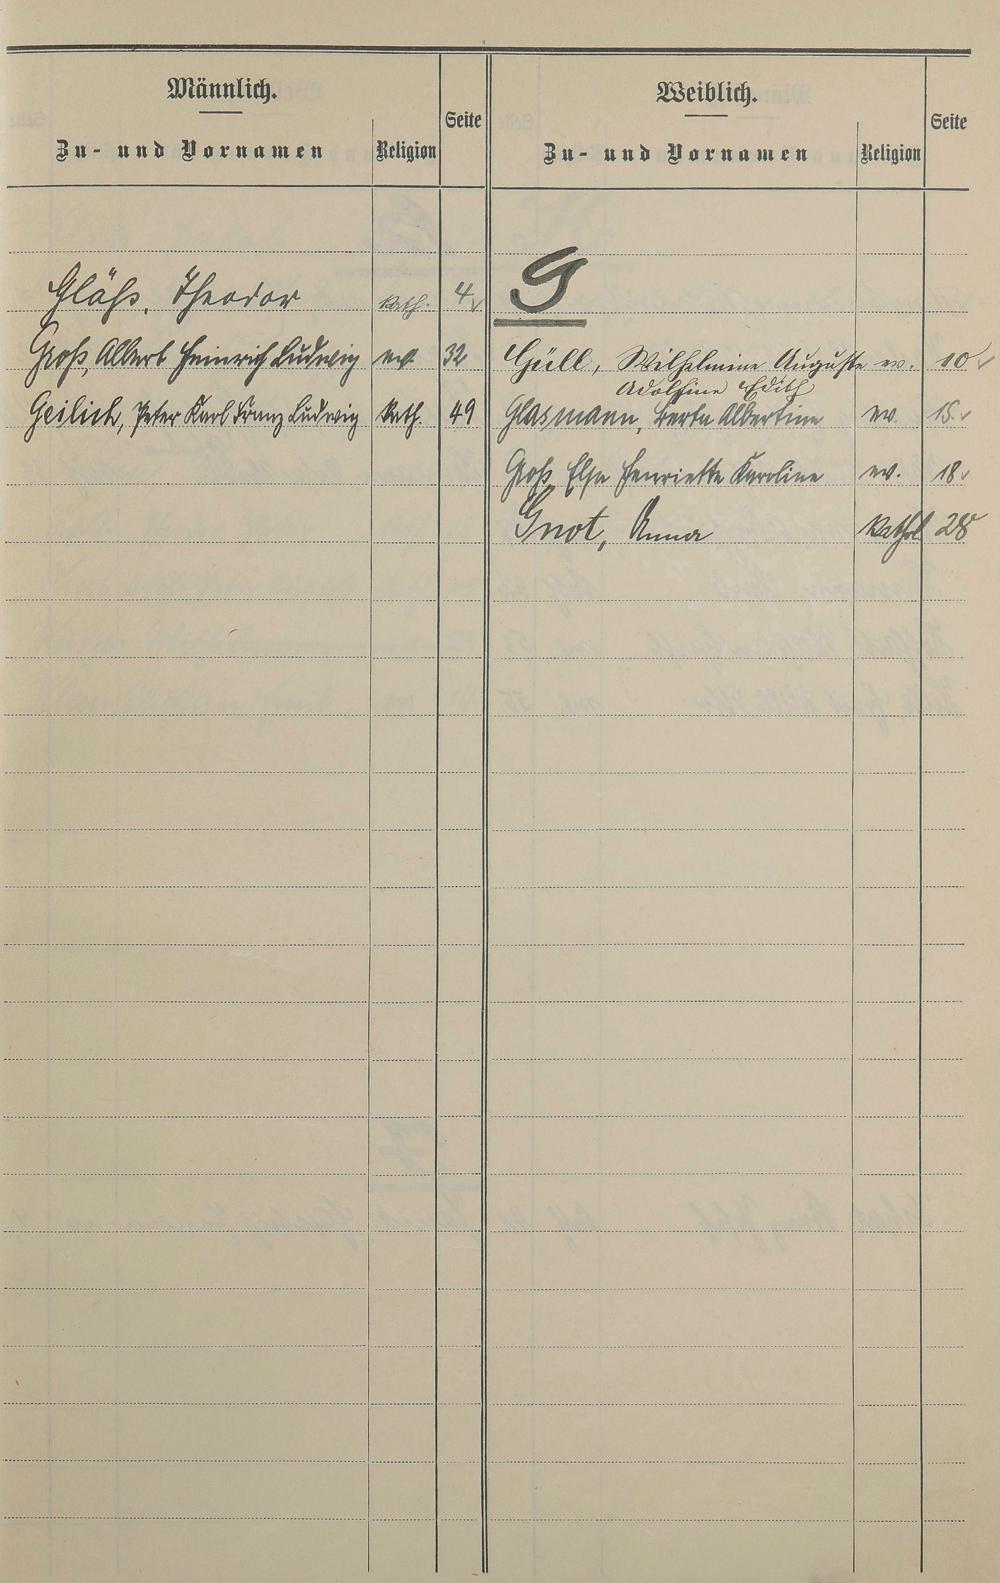 Männlich.
Zu- und Vornamen Religion Seite
Gläss, Theodor kath. 4
Groß, Albert Heinrich Ludwig ev 32
Geilich, Peter Karl Franz Ludwig kath. 49
Weiblich.
Zu- und Vornamen Religion Seite
G
Güll, Wilhelmine Auguste ev. 10
Adolfine Edith
Glasmann, Berta Albertine ev. 15
Groß, Elsa Henriette Karoline ev. 18
Gnot, Anna kathol 28